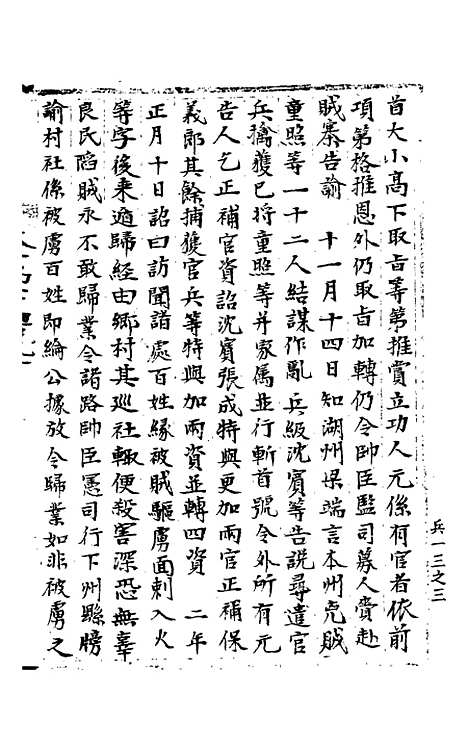 首大小高下取旨等第推賞立功人元係有官者依前
項第格推恩外仍取旨加轉仍令帥臣監司募人賫赴
賊寨告諭　十一月十四日知湖州梁端言本州兇賊
童照等一十二人結謀作亂兵級沈賓等告說尋遣官
兵擒獲已將童照等并家属並行斬首號令外所有元
告人乞正補官資詔沈賓張成特與更加兩官正補保
義郎其餘捕獲官兵等特與加兩資並轉四資　二年
正月十日詔曰訪聞諸處百姓緣被賊驅虜面刺入火
等字後来適歸経由鄉村其巡社輙便殺害深恐無辜
良民陷賊永不敢歸業令諸路帥臣憲司行下州縣牓
諭村社係被虜百姓即給公據放令歸業如非被虜之
兵一三之三